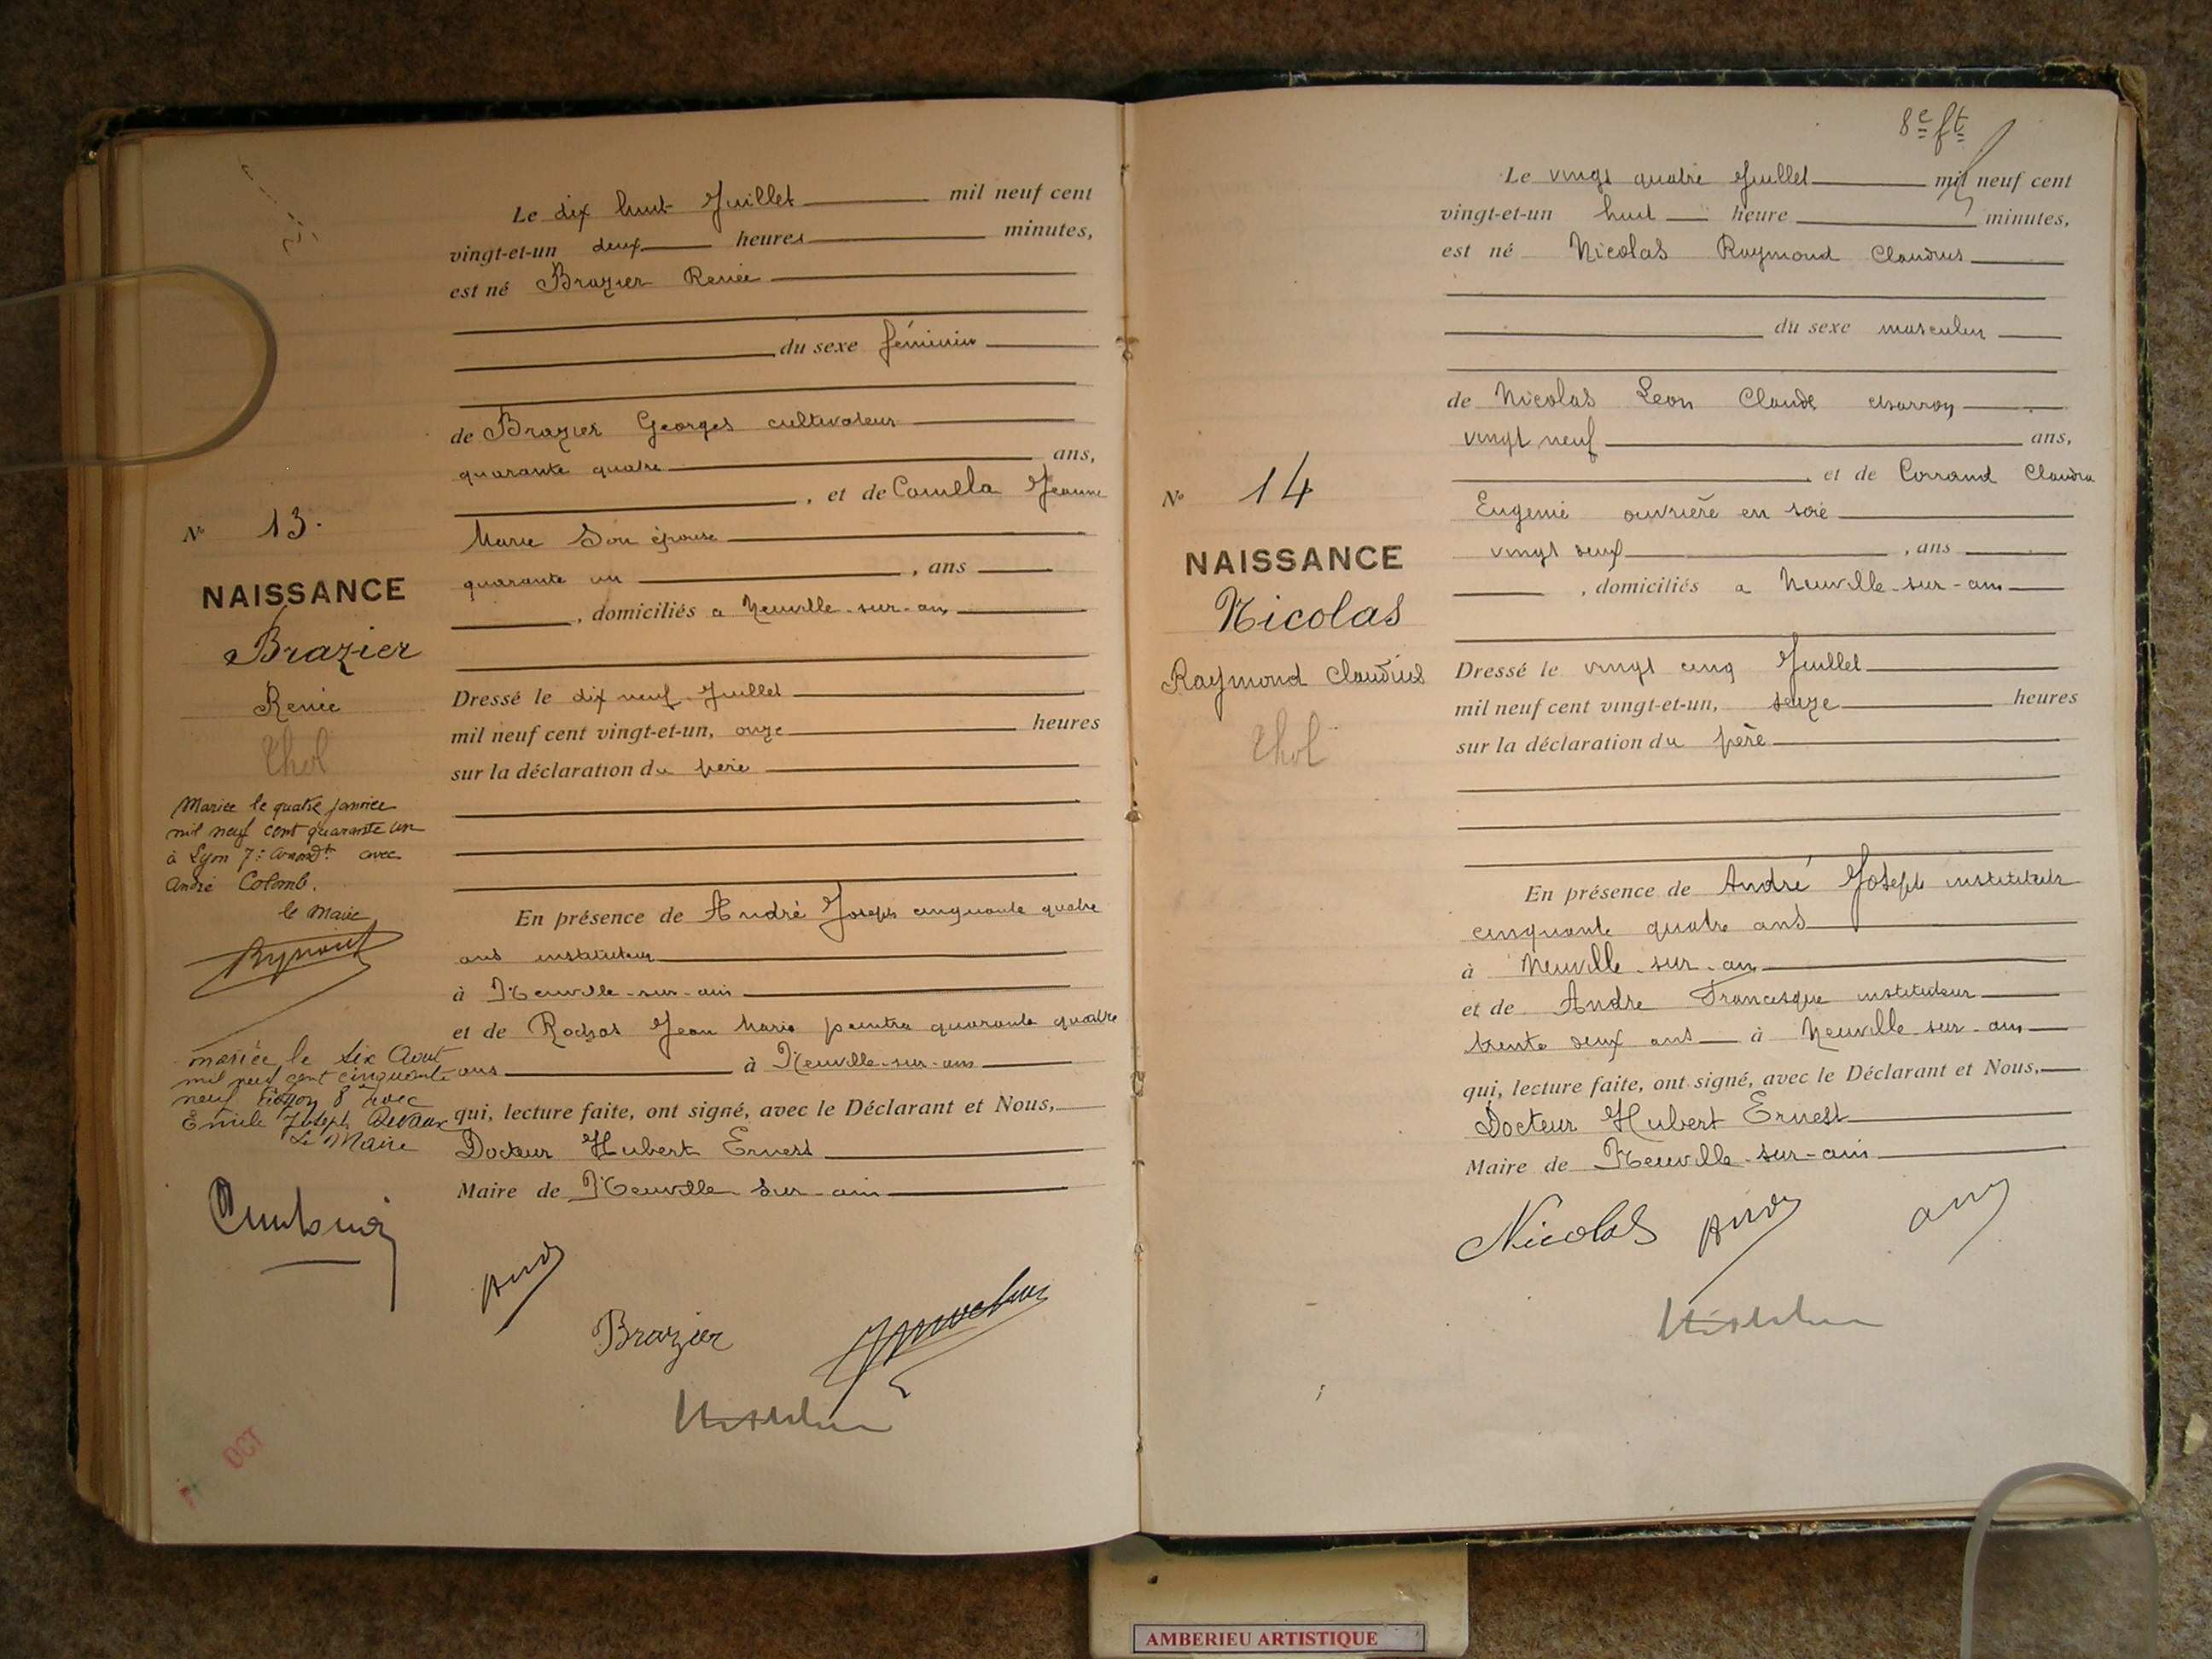 Le dix huit Juillet mil neuf cent
vingt-et-un deux heures minutes,
est né Brazier Renée
du sexe féminin
de Brazier Georges cultivateur
quarante quatre ans,
, et de Camilla Jeanne
Marie Son épouse
quarante un , ans
, domiciliés a Neuville-sur-ain
Dressé le dix neuf Juillet
mil neuf cent vingt-et-un, onze heures
sur la déclaration du père
En présence de André Joseph cinquante quatre
ans instituteur
à Neuville-sur-ain
et de Rochas Jean Marie peintre quarante quatre
ans à Neuville-sur-ain
qui, lecture faite, ont signé, avec le Déclarant et Nous,
Docteur Hubert Ernest
Maire de Neuville sur-ain
Brazier
No 13.
NAISSANCE
Brazier
Renée
Thol
Mariée le quatre janvier
mil neuf cent quarante un
à Lyon 7e arrondt avec
André Colomb.
le Maire
mariée le six Aout
mil neuf cent cinquante
neuf à Lyon 8e avec
Emile Joseph Devaux
Le Maire
OCT
8e ft
Le vingt quatre Juillet mil neuf cent
vingt-et-un huit heure minutes,
est né Nicolas Raymond Claudius
du sexe masculin
de Nicolas Leon Claude charron
vingt neuf ans,
, et de Corrand Claudia
Eugenie ouvrière en soie
vingt deux , ans
, domiciliés a Neuville-sur-ain
Dressé le vingt cinq Juillet
mil neuf cent vingt-et-un, seize heures
sur la déclaration du père
En présence de André Joseph instituteur
cinquante quatre ans
à Neuville-sur-ain
et de André Francisque instituteur
trente deux ans à Neuville-sur-ain
qui, lecture faite, ont signé, avec le Déclarant et Nous,
Docteur Hubert Ernest
Maire de Neuville-sur-ain
Nicolas
No 14
NAISSANCE
Nicolas
Raymond Claudius
Thol
AMBERIEU ARTISTIQUE